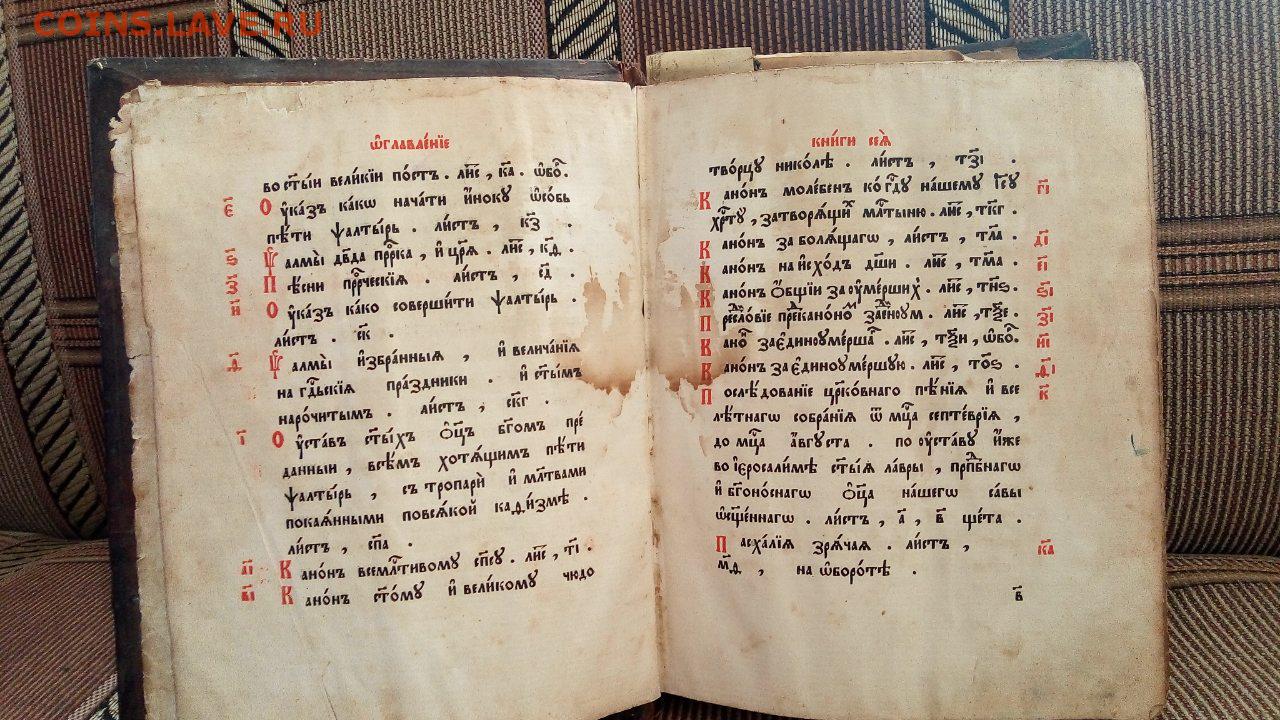 COINS.LAVE.RU
ѡ҆главле́нїе
во ст҃ы́и вели́кїи по́стъ . ли́с , к҃а . ѡ҆бо́т .
є҃ Оу҆ка́зъ ка́кѡ нача́ти и҆́ноку ѡ҆со́бь
пѣ́ти ѱалты́рь . ли́стъ , к҃з .
ѕ҃ Ѱалмы̀ дв҃да прⷪ҇рка , и҆ цр҃ѧ̀ . ли́с , к҃д .
з҃ Пѣ́сни прⷪ҇рческїѧ . ли́стъ ,
и҃ Оу҆ка́зъ ка́ко соверши́ти ѱалты́рь .
ли́стъ . с҃к .
д҃ Ѱалмы̀ и҆збра́нныѧ , и҆ велича́нїѧ
на гд҇ьскїѧ пра́здники . и҆ ст҃ы́мъ
наро́читымъ . ли́стъ , ск҃г .
і҃ Оу҆ста́въ ст҃ы́хъ ѻ҆ц҃ъ бг҃омъ пре́
да́нныи , всѣ́мъ хотѧ́щимъ пѣ́ти
ѱалты́рь , съ тропарѝ и҆ мл҃твами
покаѧ́нными повсѧ́кой каѳи́змѣ .
ли́стъ , сп҃а .
а҃і Кано́нъ всемл҇тивому сп҃су . ли́с , т҃і .
в҃і Кано́нъ ст҃о́му и҆ вели́кому чюдо
кни́ги сеѧ̀
тво́рцу нико́лѣ . ли́стъ , тз҃і .
г҃і Кано́нъ моле́бенъ ко гд҇у на́шему і҆с҃у
хрⷭ҇ту , затворѧ́щих мл҇тыню . ли́с , тк҃г .
д҃і Кано́нъ за болѧ́щагѡ , ли́стъ , тл҃а .
є҃і Кано́нъ на и҆схо́дъ дш҃и . ли́с , тм҃а .
ѕ҃і Кано́нъ ѻ҆́бщїи за оу҆ме́рших . ли́с , тн҃ѕ .
з҃і Пре
и҃і Кано́н за є҆диноуме́рша . ли́с , тѯ҃и , ѡ҆бо́т .
ѳ҃і Кано́нъ за є҆диноуме́ршую . ли́с , то҃ѕ .
к҃ После́дованїе цр҃ко́внаго пѣ́нїѧ и҆ все
лѣ́тнагѡ собра́нїѧ ѿ мц҇а септе́врїѧ ,
до мц҇а а҆́вгуста . по оу҆ста́ву и҆́же
во і҆єросали́мѣ ст҃ы́ѧ ла́вры , прпⷣбнагѡ
и҆ бг҃оно́снагѡ ѻ҆ц҃а на́шегѡ са́вы
ѡ҆сщ҃е́ннагѡ . ли́стъ , а҃ , в҃ ще́та .
к҃а Пасха́лїѧ зрѧ́чаѧ . ли́стъ ,
на ѡ҆боро́тѣ .
в҃